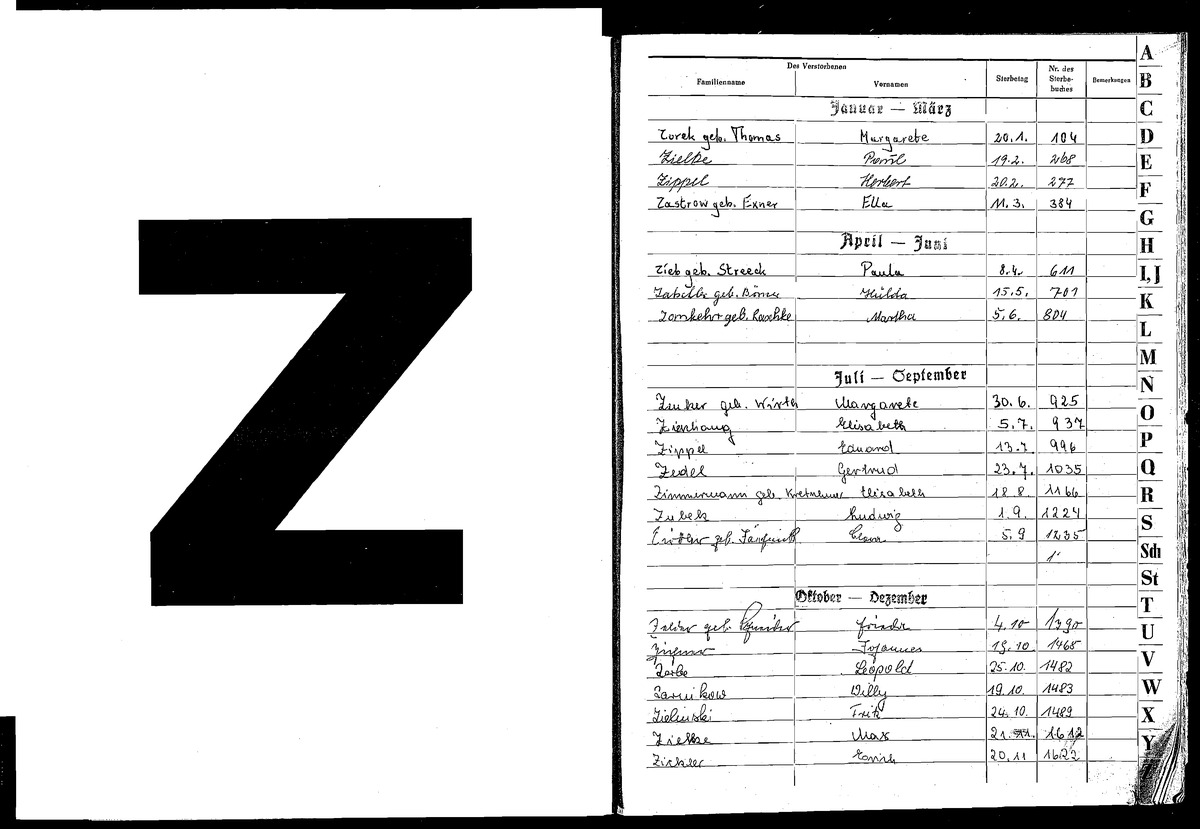 Z
Des Verstorbenen
Familienname Vornamen Sterbetag Nr. des Sterbe-buches Bemerkungen
Januar — März
Zorek geb. Thomas Margarete 20.1. 104
Zielke Paul 19.2. 268
Zippel Herbert 20.2. 277
Zastrow geb. Exner Ella 11.3. 384
April — Juni
Zieb geb. Streeck Paula 8.4. 611
geb. Hulda 15.5. 701
geb. Martha 5.6. 804
Juli — September
geb. Wirth Margarete 30.6. 925
Elisabeth 5.7. 937
Zippel Eduard 13.7. 996
Zedel Gertrud 23.7. 1035
Zimmermann geb. Elisabeth 18.8. 1166
Zubek Ludwig 1.9. 1224
geb. 5.9 1235
Oktober — Dezember
geb. 4.10 1390
Johannes 19.10 1465
Zerbe Leopold 25.10. 1482
Zarnikow Willy 19.10. 1483
Zielinski Fritz 24.10. 1489
Zielke Max 21. 1612
Zickler Erich 20.11 1622
A
B
C
D
E
F
G
H
I, J
K
L
M
N
O
P
Q
R
S
Sch
St
T
U
V
W
X
Y
Z